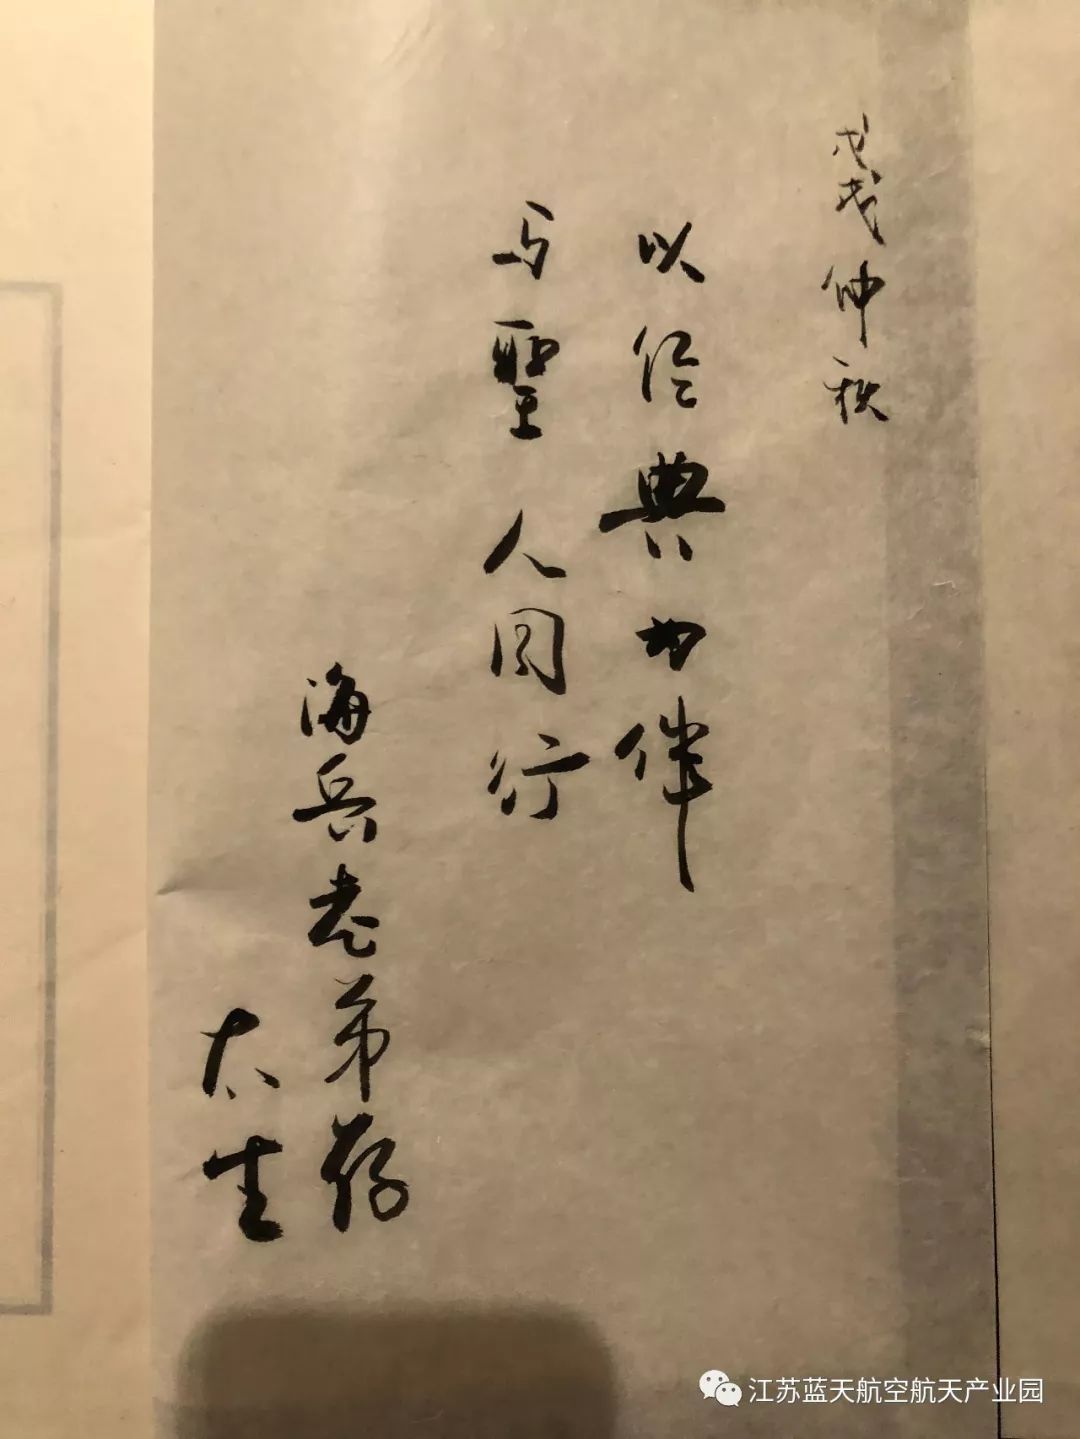 戊戌仲秋
以经典为伴
与聖人同行
海兵老弟存
太生
江苏蓝天航空航天产业园